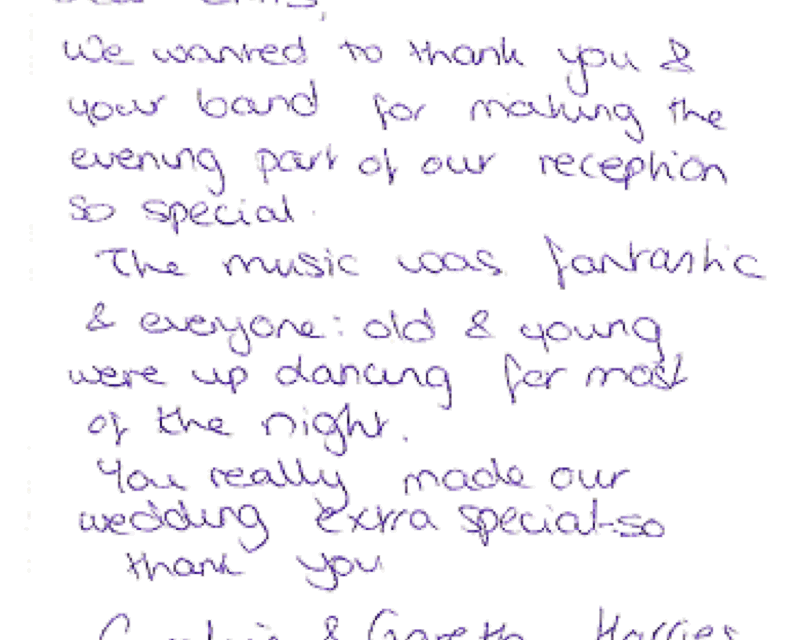 We wanted to thank you &
your band for making the
evening part of our reception
so special.
The music was fantastic
& everyone: old & young
were up dancing for most
of the night.
You really made our
wedding extra special-so
thank you
& Gareth Harries